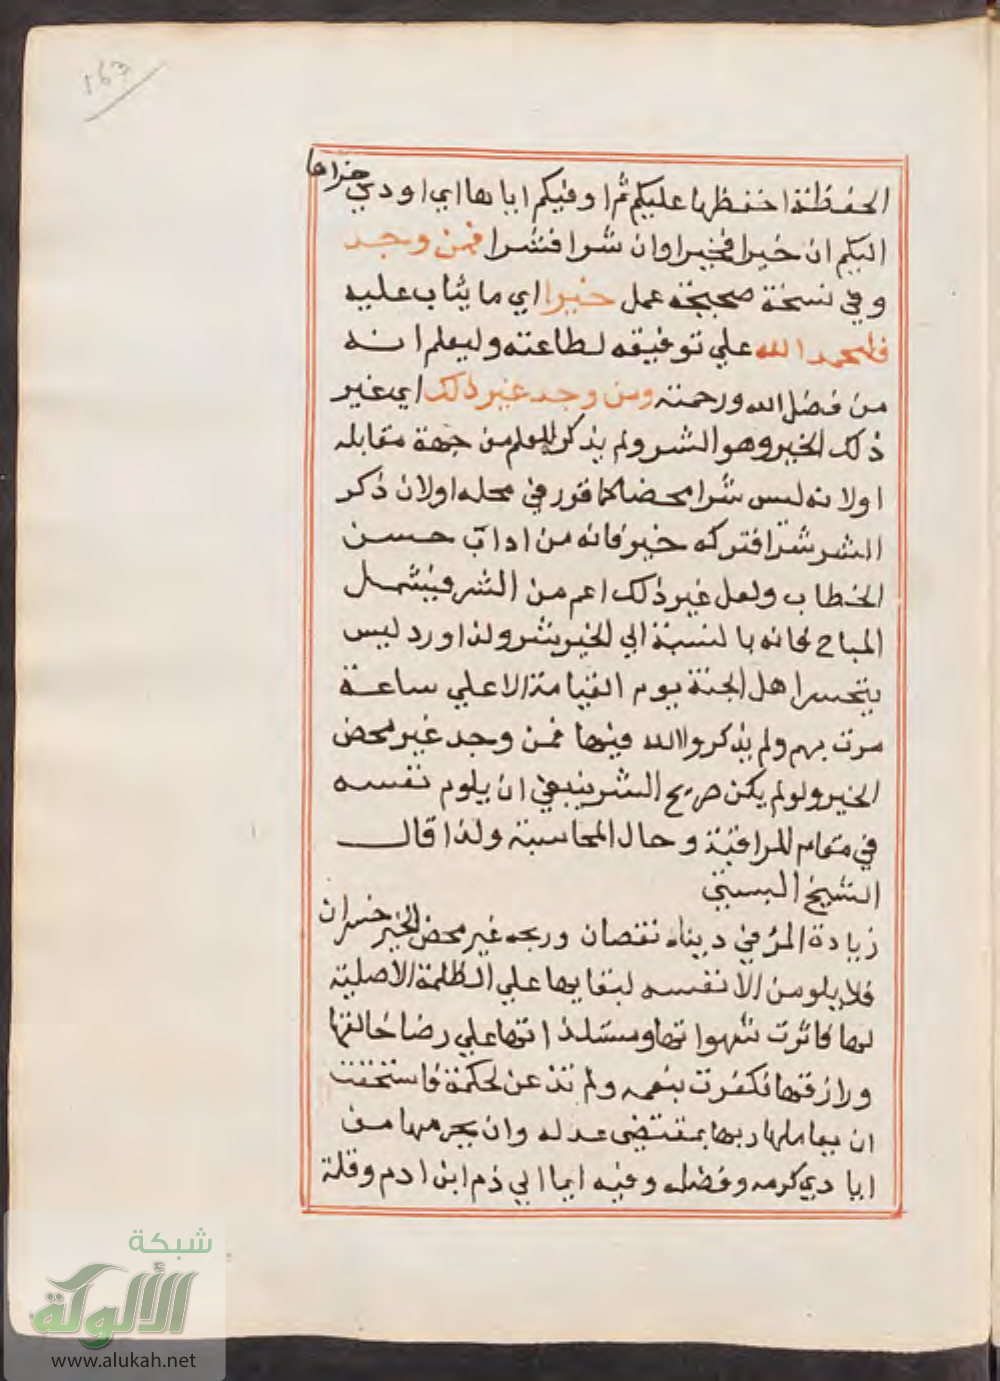 ١٦٧
الحفظة احفظها عليكم ثم اوفيكم اياها اي اودي جزاها
اليكم ان خيرا فخيرا وان شرا فشرا فمن وجد
وفي نسخة صحيحة عمل خيرا اي ما يثاب عليه
فليحمد الله علي توفيقه لطاعته وليعلم انه
من فضل الله ورحمته ومن وجد غير ذلك اي غير
ذلك الخير وهو الشر ولم يذكر للعلم من جهة مقابله
اولانه ليس شرا محضا كما قرر في محله اولان ذكر
الشر شرا فتركه خير فانه من اداب حسن
الخطاب ولعل غير ذلك اعم من الشر فيشمل
المباح فانه بالنسبة الي الخير شر ولذا ورد ليس
يتحسر اهل الجنة يوم القيامة الا علي ساعة
مرت بهم ولم يذكروا الله فيها فمن وجد غير محض
الخير ولو لم يكن صريح الشر ينبغي ان يلوم نفسه
في مقام المراقبة وحال المحاسبة ولذا قال
الشيخ البستي
زيادة المرء في دنياه نقصان وربحه غير محض الخير خسران
فلا يلومن الا نفسه لبقايها علي الظلمة الاصلية
لها فاثرت شهواتها ومستلذاتها علي رضا خالقها
ورازقها فكفرت بنعمه ولم تذعن لحكمة فاستحقت
ان يعاملها ربها بمقتضي عدله وان يحرمها من
ايادي كرمه وفضله وفيه ايما الي ذم ابن ادم وقلة
شبكة
الألوكة
www.alukah.net